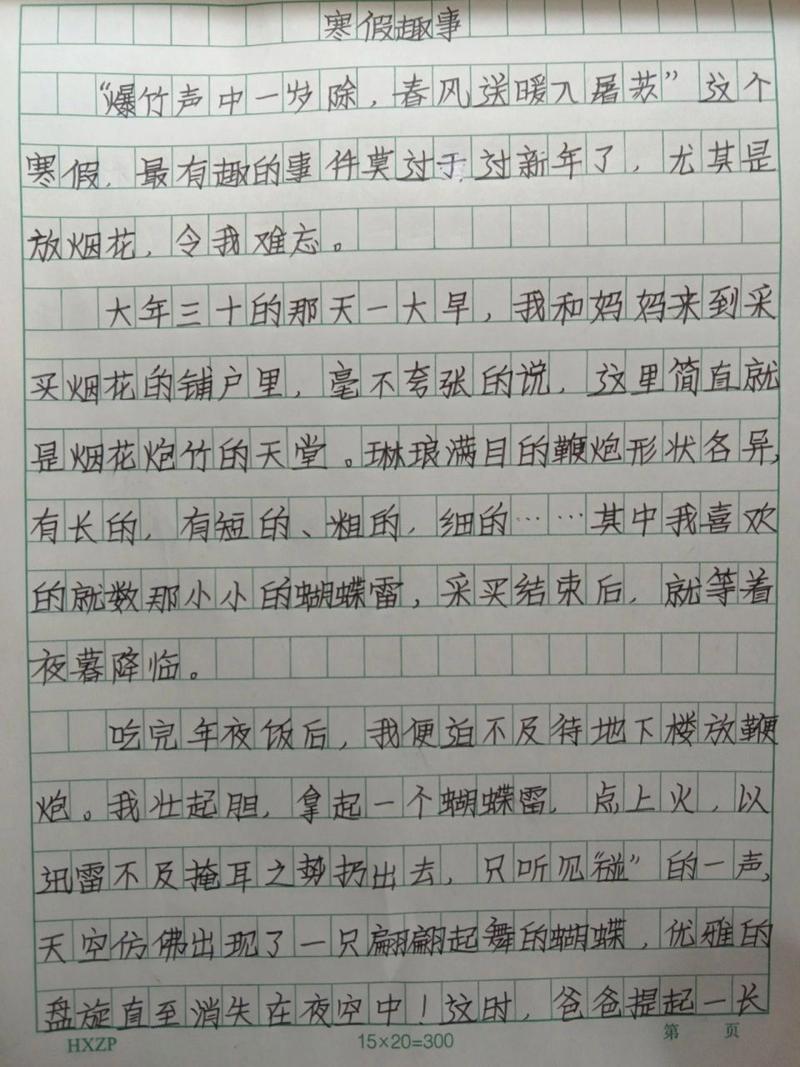 寒假趣事
“爆竹声中一岁除，春风送暖入屠苏”这个
寒假，最有趣的事件莫过于过新年了，尤其是
放烟花，令我难忘。
大年三十的那天一大早，我和妈妈来到采
买烟花的铺户里，毫不夸张的说，这里简直就
是烟花炮竹的天堂。琳琅满目的鞭炮形状各异，
有长的，有短的、粗的，细的……其中我喜欢
的就数那小小的蝴蝶雷，采买结束后，就等着
夜暮降临。
吃完年夜饭后，我便迫不及待地下楼放鞭
炮。我壮起胆，拿起一个蝴蝶雷，点上火，以
迅雷不及掩耳之势扔出去，只听见“碰”的一声，
天空仿佛出现了一只翩翩起舞的蝴蝶，优雅的
盘旋直至消失在夜空中！这时，爸爸提起一长
HXZP 15×20=300 第 页